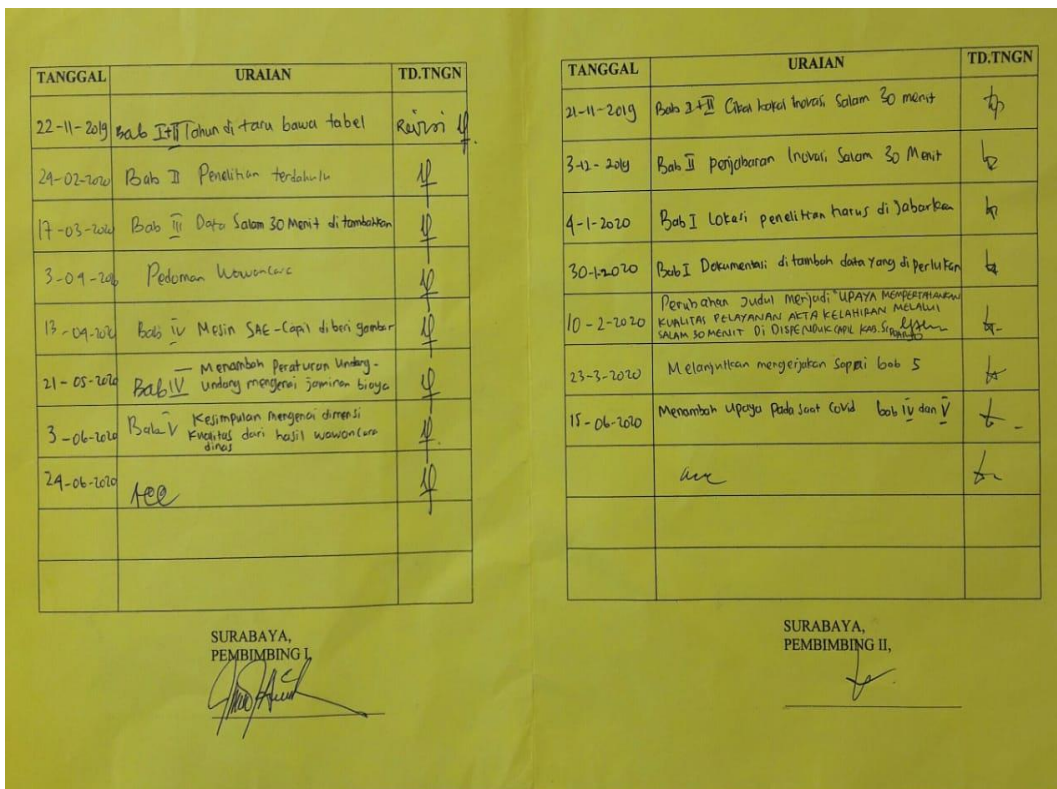 TANGGAL URAIAN TD.TNGN
22-11-2019 Bab I+II Tahun di taru bawa tabel Revisi
24-02-2020 Bab II Penelitian terdahulu
17-03-2020 Bab III Data Salam 30 Menit di tambahkan
3-04-2020 Pedoman Wawancara
13-04-2020 Bab IV Mesin SAE-Capil diberi gambar
21-05-2020 Bab IV — Menambah Peraturan Undang-
undang mengenai jaminan biaya
3-06-2020 Bab V Kesimpulan mengenai dimensi
kualitas dari hasil wawancara
dinas
24-06-2020 Acc
SURABAYA,
PEMBIMBING I,
TANGGAL URAIAN TD.TNGN
21-11-2019 Bab I+II Cikal bakal Inovasi Salam 30 menit
3-12-2019 Bab II penjabaran Inovasi Salam 30 Menit
4-1-2020 Bab I Lokasi penelitian harus di Jabarkan
30-1-2020 Bab I Dokumentasi di tambah data yang di perlukan
Perubahan Judul menjadi "UPAYA MEMPERTAHANKAN
10-2-2020 KUALITAS PELAYANAN AKTA KELAHIRAN MELALUI
SALAM 30 MENIT DI DISPENDUKCAPIL KAB. SIDOARJO
23-3-2020 Melanjutkan mengerjakan sapai bab 5
15-06-2020 Menambah upaya pada saat Covid bab IV dan V
acc
SURABAYA,
PEMBIMBING II,